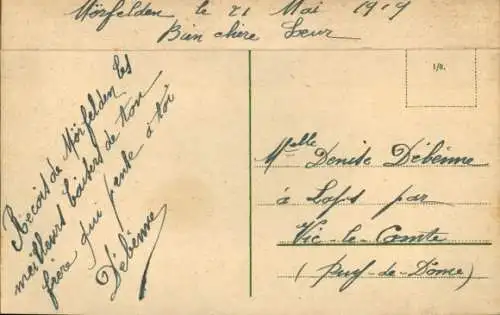 Mörfelden le 21 Mai 1919
Bien chère Sœur
Recois de Mörfelden les
meilleurs baisers de ton
frère qui pense à toi
Débenne
1/8.
Melle Denise Débenne
à Laps par
Vic-le-Comte
(Puy-de-Dôme)